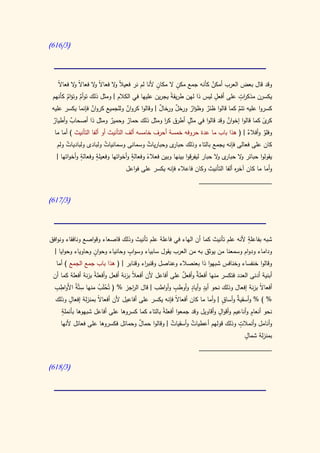 (616/3)
وقد قال بعض العرب أمكنٌ كأنه جمع مكنٍ لا مكانٍ لأنا لم نر فعيلاً ولا فعالاً ولا فعالاً ولا فعالاً
يكسرن مذكراتٍ على أفعلٍ ليس ذا لهن طريقةً يجرين عليها في الكلام ) ومثل ذلك توأمٌ وتؤامٌ كأنهم
كسروا عليه تئمٌ كما قالوا ظئرٌ وظؤارٌ ورخلٌ ورخالٌ ) وقالوا كروانٌ وللجميع كروانٌ فإنما يكسر عليه
كرىً كما قالوا إخوانٌ وقد قالوا في مثلٍ أطرق كرا ومثل ذلك حمارٌ وحميرٌ ومثل ذا أصحابٌ وأطيارٌ
وفلوٌ وأفلاءٌ ) ( هذا باب ما عدة حروفه خمسة أحرف خامسه ألف التأنيث أو ألفا التأنيث ) أما ما
كان على فعالى فإنه يجمع بالتاء وذلك حبارى وحبارياتٌ وسمانى وسمانياتٌ ولبادى ولبادياتٌ ولم
يقولوا حبائر ولا حبارى ولا حبار ليفرقوا بينها وبين فعلاءَ وفعالةٍ وأخواتها وفعيلةٍ وفعالةٍ وأخواتها )
وأما ما كان آخره ألفا التأنيث وكان فاعلاء فإنه يكسر على فواعل
(617/3)
شبه بفاعلةٍ لأنه علم تأنيث كما أن الهاء في فاعلة علم تأنيث وذلك قاصعاء وقواصع ونافقاء ونوافق
وداماء ودوام وسمعنا من يوثق به من العرب يقول سابياء وسوابٍ وحانياء وحوانٍ وحاوياء وحوايا )
وقالوا خنفساء وخنافس شبهوا ذا بعنصلاء وعناصل وقنبراء وقنابر ) ( هذا باب جمع الجمع ) أما
أبنية أدنى العدد فتكسر منها أفعلةٌ وأفعلٌ على أفاعل لأن أفعلاً بزنة أفعل وأفعلةً بزنة أفعلةٍ كما أن
أفعالاً بزنة إفعال وذلك نحو أيدٍ وأيادٍ وأوطبٍ وأواطب ) قال الراجز % ( تُحْلَبُ منها سِتَّةُ الأَوَاطِبِ
% ( % وأسقيةٌ وأساقٍ ) وأما ما كان أفعالاً فإنه يكسر على أفاعيل لأن أفعالاً بمنزلة إفعالٍ وذلك
نحو أنعامٍ وأناعيم وأقوالٍ وأقاويل وقد جمعوا أفعلة بالتاء كما كسروها على أفاعل شبهوها بأنملةٍ
وأنامل وأنملاتٍ وذلك قولهم أعطياتٌ وأسقياتٌ ) وقالوا جمالٌ وجمائل فكسروها على فعائل لأنها
بمنزلة شمالٍ
(618/3)